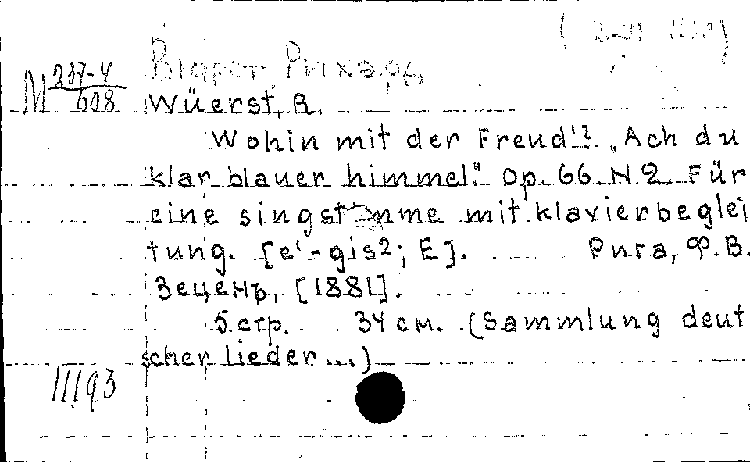 М 237-4/608
Вюрст, Рихард,
Wüerst, R.
Wohin mit der Freud'? „Ach du
klar blauer himmel." Op. 66. N 2. Für
eine singstimme mit klavierbeglei
tung. [e'-gis2; E]. Рига, Ф. В.
Зеценъ, [1881].
5 стр. 34 см. (Sammlung deut
scher lieder...)
11193